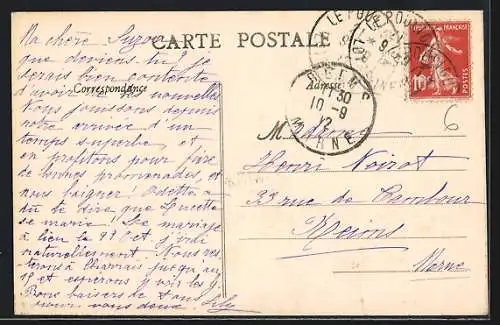 CARTE POSTALE
Correspondance
Adresse
Ma chère Suzon
que deviens tu? Je
serais bien contente
d'avoir de tes nouvelles
Nous jouissons depuis
notre arrivée d'un
temps superbe et
en profitons pour faire
de bonnes promenades, et
nous baigner! Odette a
dû te dire que Lucette
se marie! Le mariage
a lieu le Oct. j'irai
naturellement. Nous res
terons à jusqu'au
15 et espérons y voir les
Bons baisers de tous
pour vous deux. Lily
M
Henri Noirot
33 rue de Cambour
Reims
Marne
6
REIMS
11 30
10-9
12
MARNE
LE POUL
10
POSTES